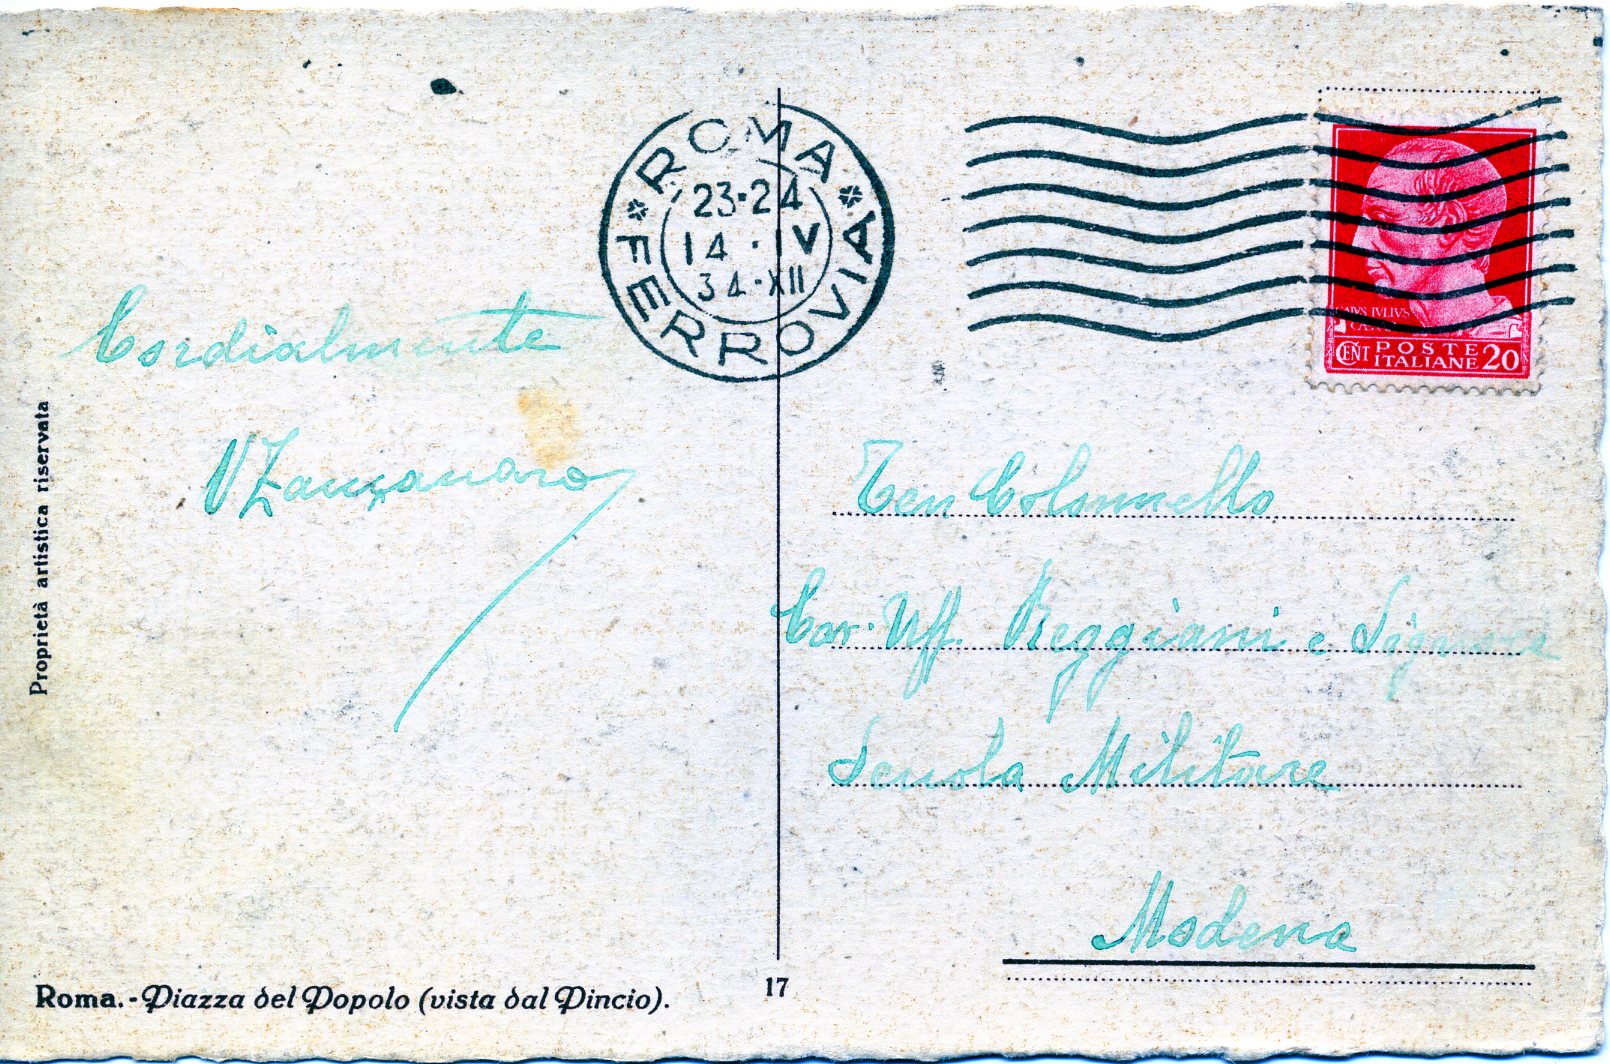 Proprietà artistica riservata
Cordialmente
ROMA
FERROVIA
23·24
14·IV
34·XII
CENT POSTE ITALIANE 20
Ten Colonnello
Cav. Uff. Reggiani e Signora
Scuola Militare
Modena
Roma.-Piazza del Popolo (vista dal Pincio).
17